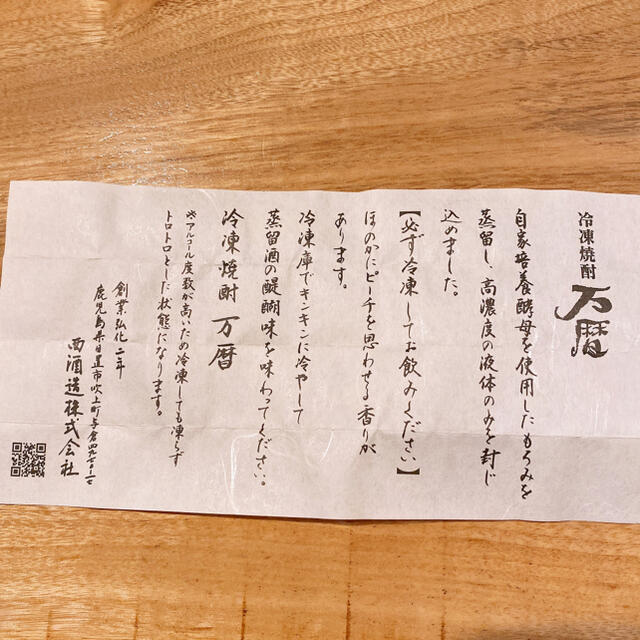 冷凍焼酎
万暦
自家培養酵母を使用したもろみを
蒸留し、高濃度の液体のみを封じ
込めました。
【必ず冷凍してお飲みください】
ほのかにピーチを思わせる香りが
あります。
冷凍庫でキンキンに冷やして
蒸留酒の醍醐味を味わってください。
冷凍焼酎 万暦
※アルコール度数が高いため冷凍しても凍らず
トロトロとした状態になります。
創業弘化二年
鹿児島県日置市吹上町与倉四九七〇-二
西酒造株式会社